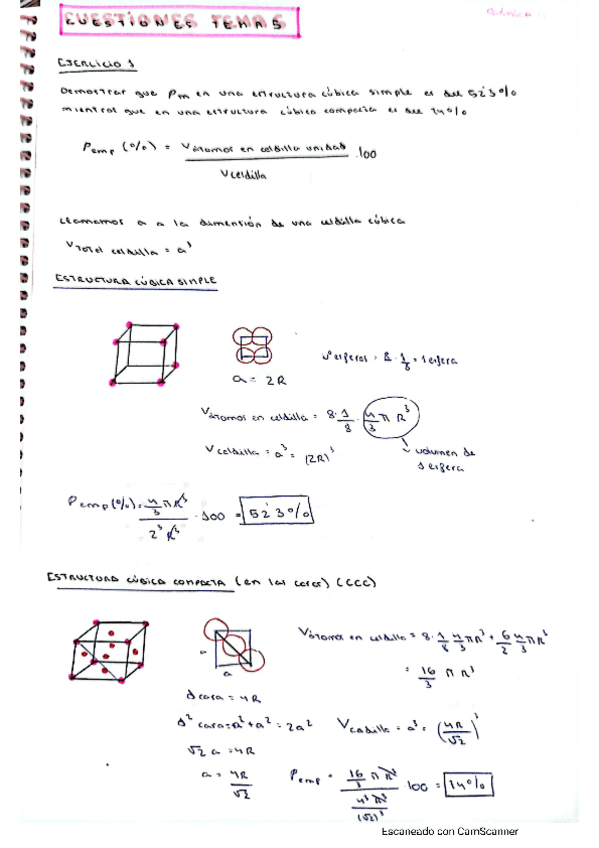 Química
CUESTIONES TEMA 5
EJERCICIO 1
Demostrar que Pm en una estructura cúbica simple es del 52'3%
mientras que en una estructura cúbica compacta es del 74%
Pemp (%) = Vátomos en celdilla unidad / Vceldilla · 100
Llamamos a a la dimensión de una celdilla cúbica
VTotal celdilla = a³
ESTRUCTURA CÚBICA SIMPLE
a = 2R
Nº esferas = 8 · 1/8 = 1 esfera
Vátomos en celdilla = 8 · 1/8 · 4/3 π R³
Vceldilla = a³ = (2R)³
volumen de
1 esfera
Pemp (%) = 4/3 π R³ / 2³ R³ · 100 = 52'3%
ESTRUCTURA CÚBICA COMPACTA (en las caras) (CCC)
a
a
Vátomos en celdilla = 8 · 1/8 4/3 π R³ + 6/2 4/3 π R³
= 16/3 π R³
d cara = 4R
d² cara = a² + a² = 2a²
Vceldilla = a³ = (4R/√2)³
√2 a = 4R
a = 4R/√2
Pemp = 16/3 π R³ / 4³ R³/(√2)³ 100 = 74%
Escaneado con CamScanner